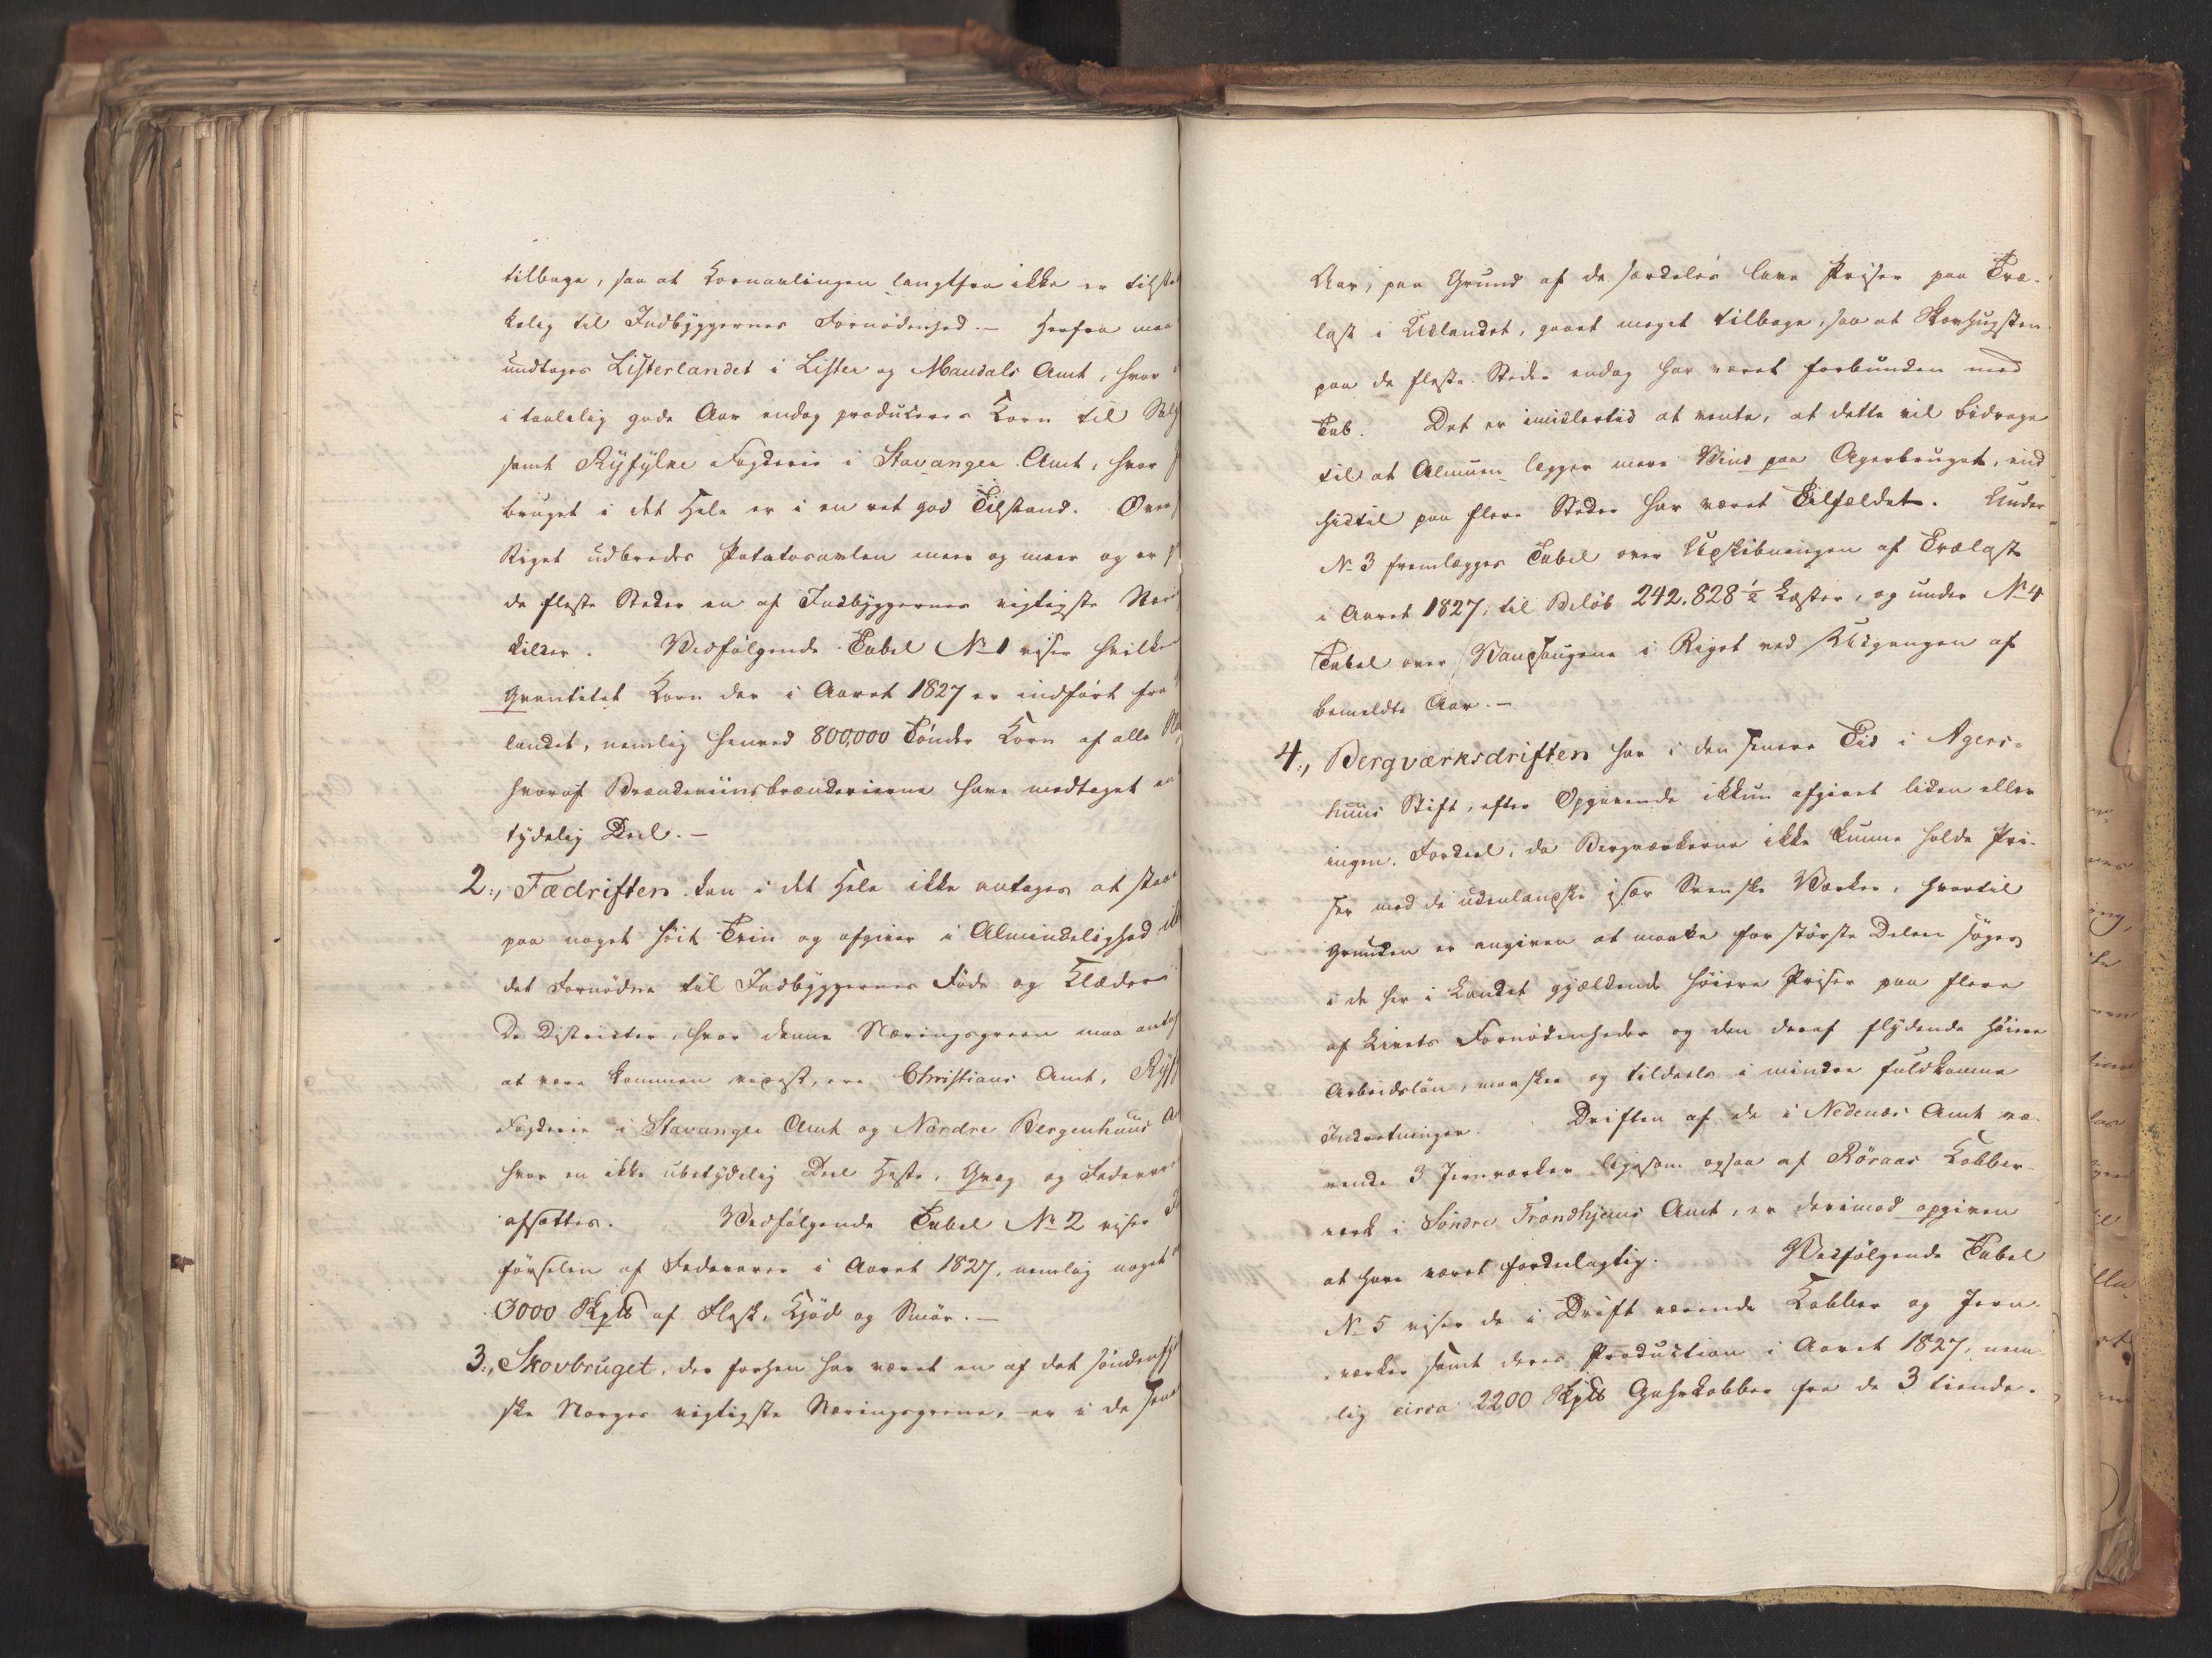 tilbage, saa at Kornavlingen langtfra ikke er tilstræk
kelig til Indbyggernes Fornødenhed.— Herfra maa
undtages Listerlandet i Lister og Mandals Amt, hvor
i taalelig gode Aar endog produceres Korn til Salg
samt Ryfylke Fogderie i Stavanger Amt, hvor
bruget i det Hele er i en ret god Tilstand. Over
Riget udbredes Potatosavlen meer og meer og er p
de fleste Steder en af Indbyggernes vigtigste Nær
kilder. Vedfølgende Tabel No 1 viser hvilke
Qvantitet Korn der i Aaret 1827 er indført fra
landet, nemlig henved 800,000 Tønder Korn af alle
hvoraf Brændeviinsbrænderierne have medtaget en
tydelig Deel.—
2:, Fædriften kan i det Hele ikke antages at staae
paa noget høit Trin og afgiver i Almindelighed ik
det Fornødne til Indbyggernes Føde og Klæder
De Districter, hvor denne Næringsgreen maa antag
at være kommen videst, ere Christians Amt, Ryf
Fogderie i Stavanger Amt og Nordre Bergenhuus A
hvor en ikke ubetydelig Deel Heste, Qvæg og Fedevar
afsættes. Vedfølgende Tabel No 2 viser
førselen af Fedevarer i Aaret 1827, nemlig noget
3000 Skpd af Flesk, Kjød og Smør.—
3:, Skovbruget, der forhen har været en af det søndenfjel
ske Norges vigtigste Næringsgrene, er i de sene
Aar, paa Grund af de særdeles lave Priser paa Træ-
last i Udlandet, gaaet meget tilbage, saa at Skovhugsten
paa de fleste Steder endog har været forbunden med
Tab. Det er imidlertid at vente, at dette vil bidrage
til at Almuen lægger mere Vind paa Agerbruget, end
hidtil paa flere Steder har været Tilfældet. Under
No 3 fremlægges Tabel over Udskibningen af Trælast
i Aaret 1827, til Beløb 242.828 1/2 Læster, og under No 4
Tabel over Vandsaugene i Riget ved Udgangen af
bemeldte Aar.—
4:, Bergværksdriften har i den senere Tid i Agers-
huus Stift, efter Opgivende ikkun afgivet liden eller
ingen Fordeel, da Bergværkerne ikke kunne holde Pri-
ser med de udenlandske især Svenske Værker, hvortil
Grunden er angiven at maatte for største Delen søges
i de her i Landet gjældende høiere Priser paa flere
af Livets Fornødenheder og den deraf flydende høiere
Arbeidsløn, maaskee og tildeels i mindre fuldkomne
Indretninger. Driften af de i Nedenæs Amt væ-
rende 3 Jernværker ligesom ogsaa af Røraas Kobber-
værk i Søndre Trondhjems Amt, er derimod opgiven
at have været fordeelagtig. Vedfølgende Tabel
No 5 viser de i Drift værende Kobber og Jern-
værker samt deres Production i Aaret 1827, nem-
lig circa 2200 Skpd Gahrkobber fra de 3 tiende-